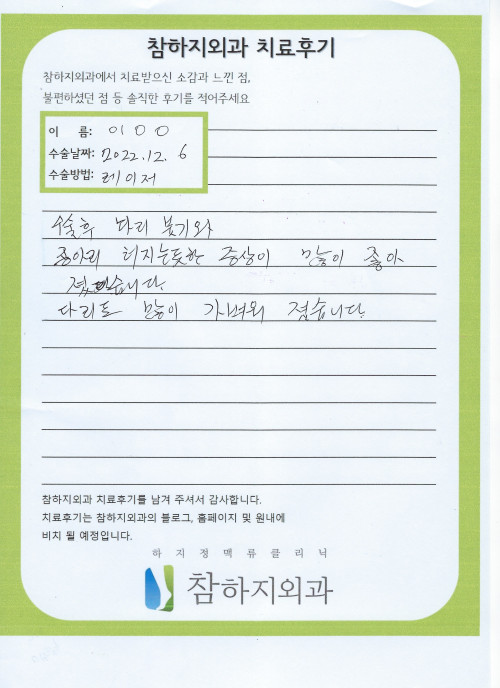 참하지외과 치료후기
참하지외과에서 치료받으신 소감과 느낀 점,
불편하셨던 점 등 솔직한 후기를 적어주세요
이 름: 이ㅇㅇ
수술날짜: 2022.12. 6
수술방법: 레이저
수술후 다리 붓기와
종아리 터지는듯한 증상이 많이 좋아
졌습니다.
다리도 많이 가벼워 졌습니다.
참하지외과 치료후기를 남겨 주셔서 감사합니다.
치료후기는 참하지외과의 블로그, 홈페이지 및 원내에
비치 될 예정입니다.
하지정맥류클리닉
참하지외과